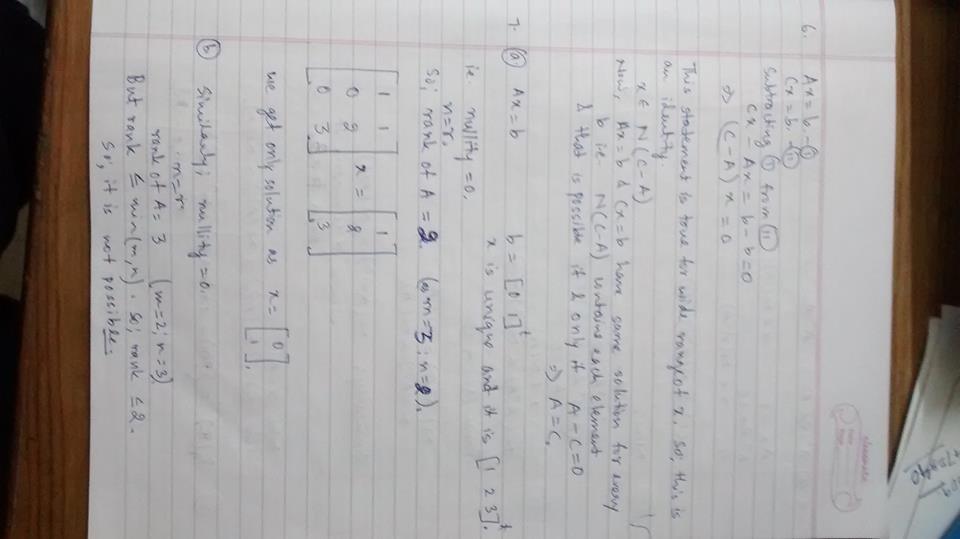 6. Ax = b. - (I)
Cx = b. - (II)
subtracting (I) from (II)
Cx - Ax = b - b = 0
=> (C - A) x = 0
This statement is true for wide range of x. So; this is
an identity.
x ∈ N(C-A)
Now, Ax = b & Cx = b have same solution for every
b i.e. N(C-A) contains each element
& that is possible if & only if A - C = 0
=> A = C.
7. (a) Ax = b b = [0 1]^t
x is unique and it is [1 2 3]^t.
ie. nullity = 0.
n = r.
So; rank of A = 2 (as m = 3; n = 2).
[1 1
0 2
0 3] x = [1
8
3]
we get only solution as x = [0
1].
(b) Similarly; nullity = 0.
m = r
rank of A = 3 (m = 2; n = 3)
But rank ≤ min(m, n). So; rank ≤ 2.
So; it is not possible.